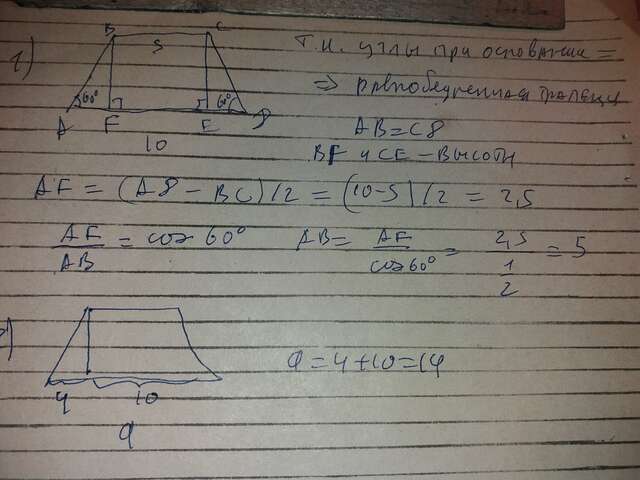 1)
B 5 C
60° 60°
A F E D
10
т.к. углы при основании =
⇒ равнобедренная трапеция
AB=CD
BF и CE – высоты
AF = (AD – BC)/2 = (10-5)/2 = 2,5
AF/AB = cos 60° AB = AF/cos60° = 2,5/(1/2) = 5
4 10
a
a = 4+10=14